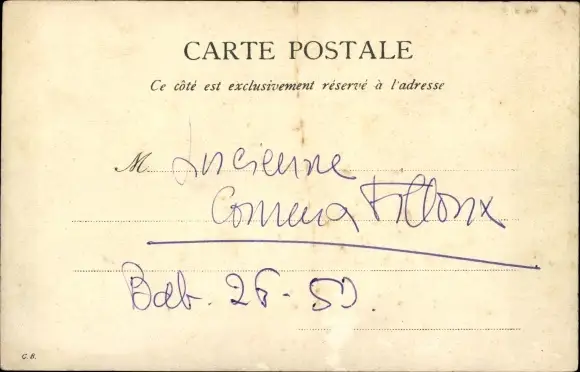 CARTE POSTALE
Ce côté est exclusivement réservé à l'adresse
M. Lucienne
Filloux
26-
G.B.